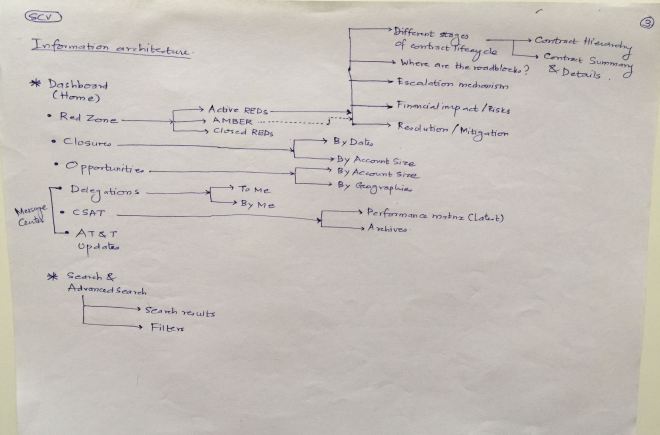 SCV
3
Information architecture.
Different stages
of contract lifecycle
Contract Hierarchy
Contract Summary
& Details.
Where are the roadblocks?
Escalation mechanism
Financial impact / Risks
Resolution / Mitigation
* Dashboard
(Home)
• Red Zone
Active REDs
AMBER
Closed REDs
• Closures
By Dates
By Account Size
• Opportunities
By Account Size
By Geographies
Message
Center
• Delegations
To Me
By Me
• CSAT
Performance matrix (Latest)
Archives
• AT&T
Updates
* Search &
Advanced Search
Search results
Filters